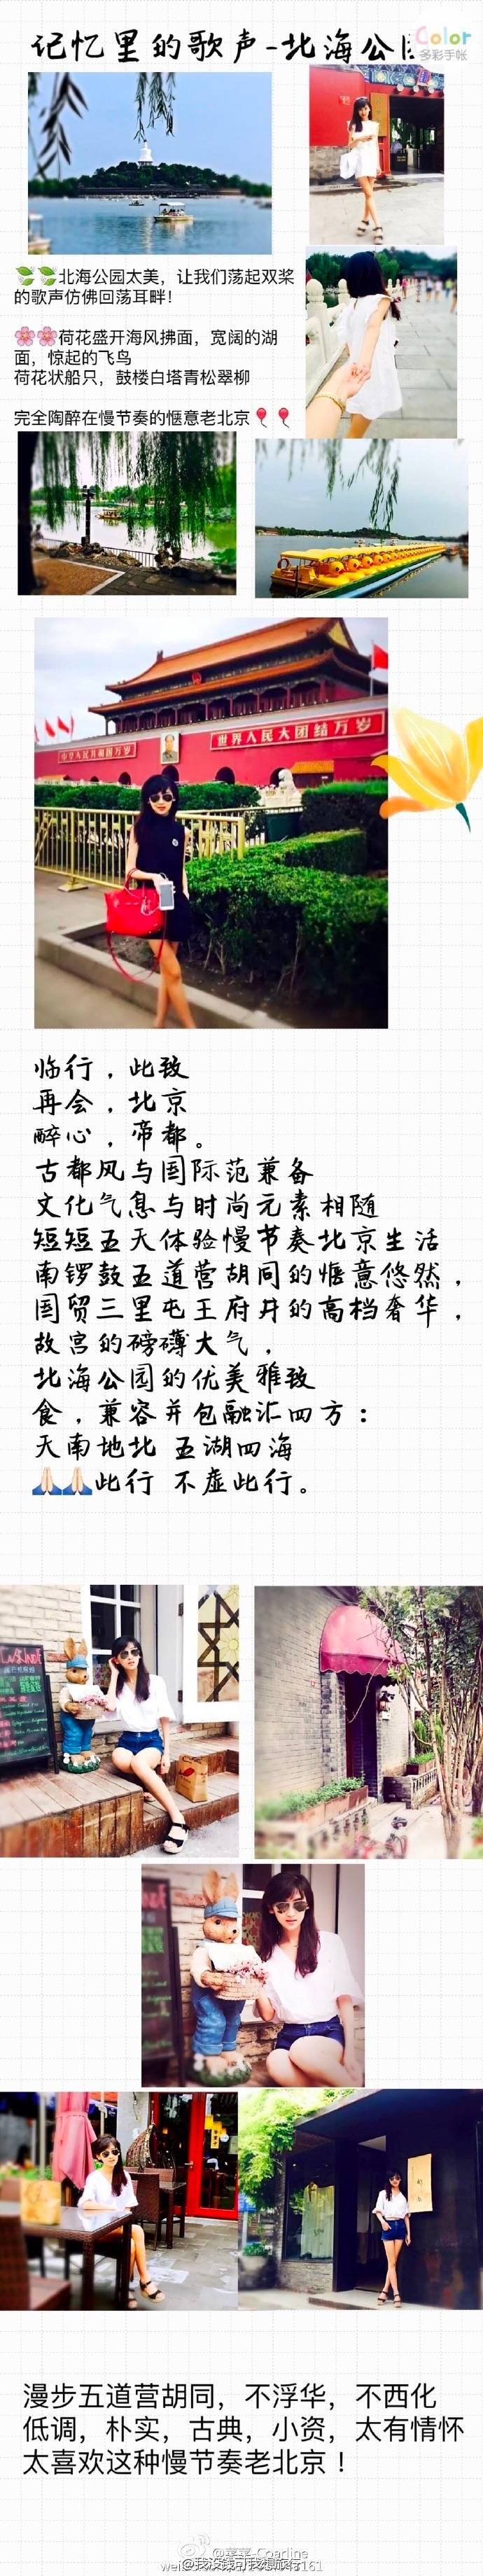 记忆里的歌声-北海公园
Color
多彩手帐
🍃🍃北海公园太美，让我们荡起双桨
的歌声仿佛回荡耳畔！
🌸🌸荷花盛开海风拂面，宽阔的湖
面，惊起的飞鸟
荷花状船只，鼓楼白塔青松翠柳
完全陶醉在慢节奏的惬意老北京🎈🎈
中华人民共和国万岁
世界人民大团结万岁
临行，此致
再会，北京
醉心，帝都。
古都风与国际范兼备
文化气息与时尚元素相随
短短五天体验慢节奏北京生活
南锣鼓五道营胡同的惬意悠然，
国贸三里屯王府井的高档奢华，
故宫的磅礴大气，
北海公园的优美雅致
食，兼容并包融汇四方：
天南地北 五湖四海
🙏🏻🙏🏻此行 不虚此行。
漫步五道营胡同，不浮华，不西化
低调，朴实，古典，小资，太有情怀
太喜欢这种慢节奏老北京！
@我没钱可我想旅行